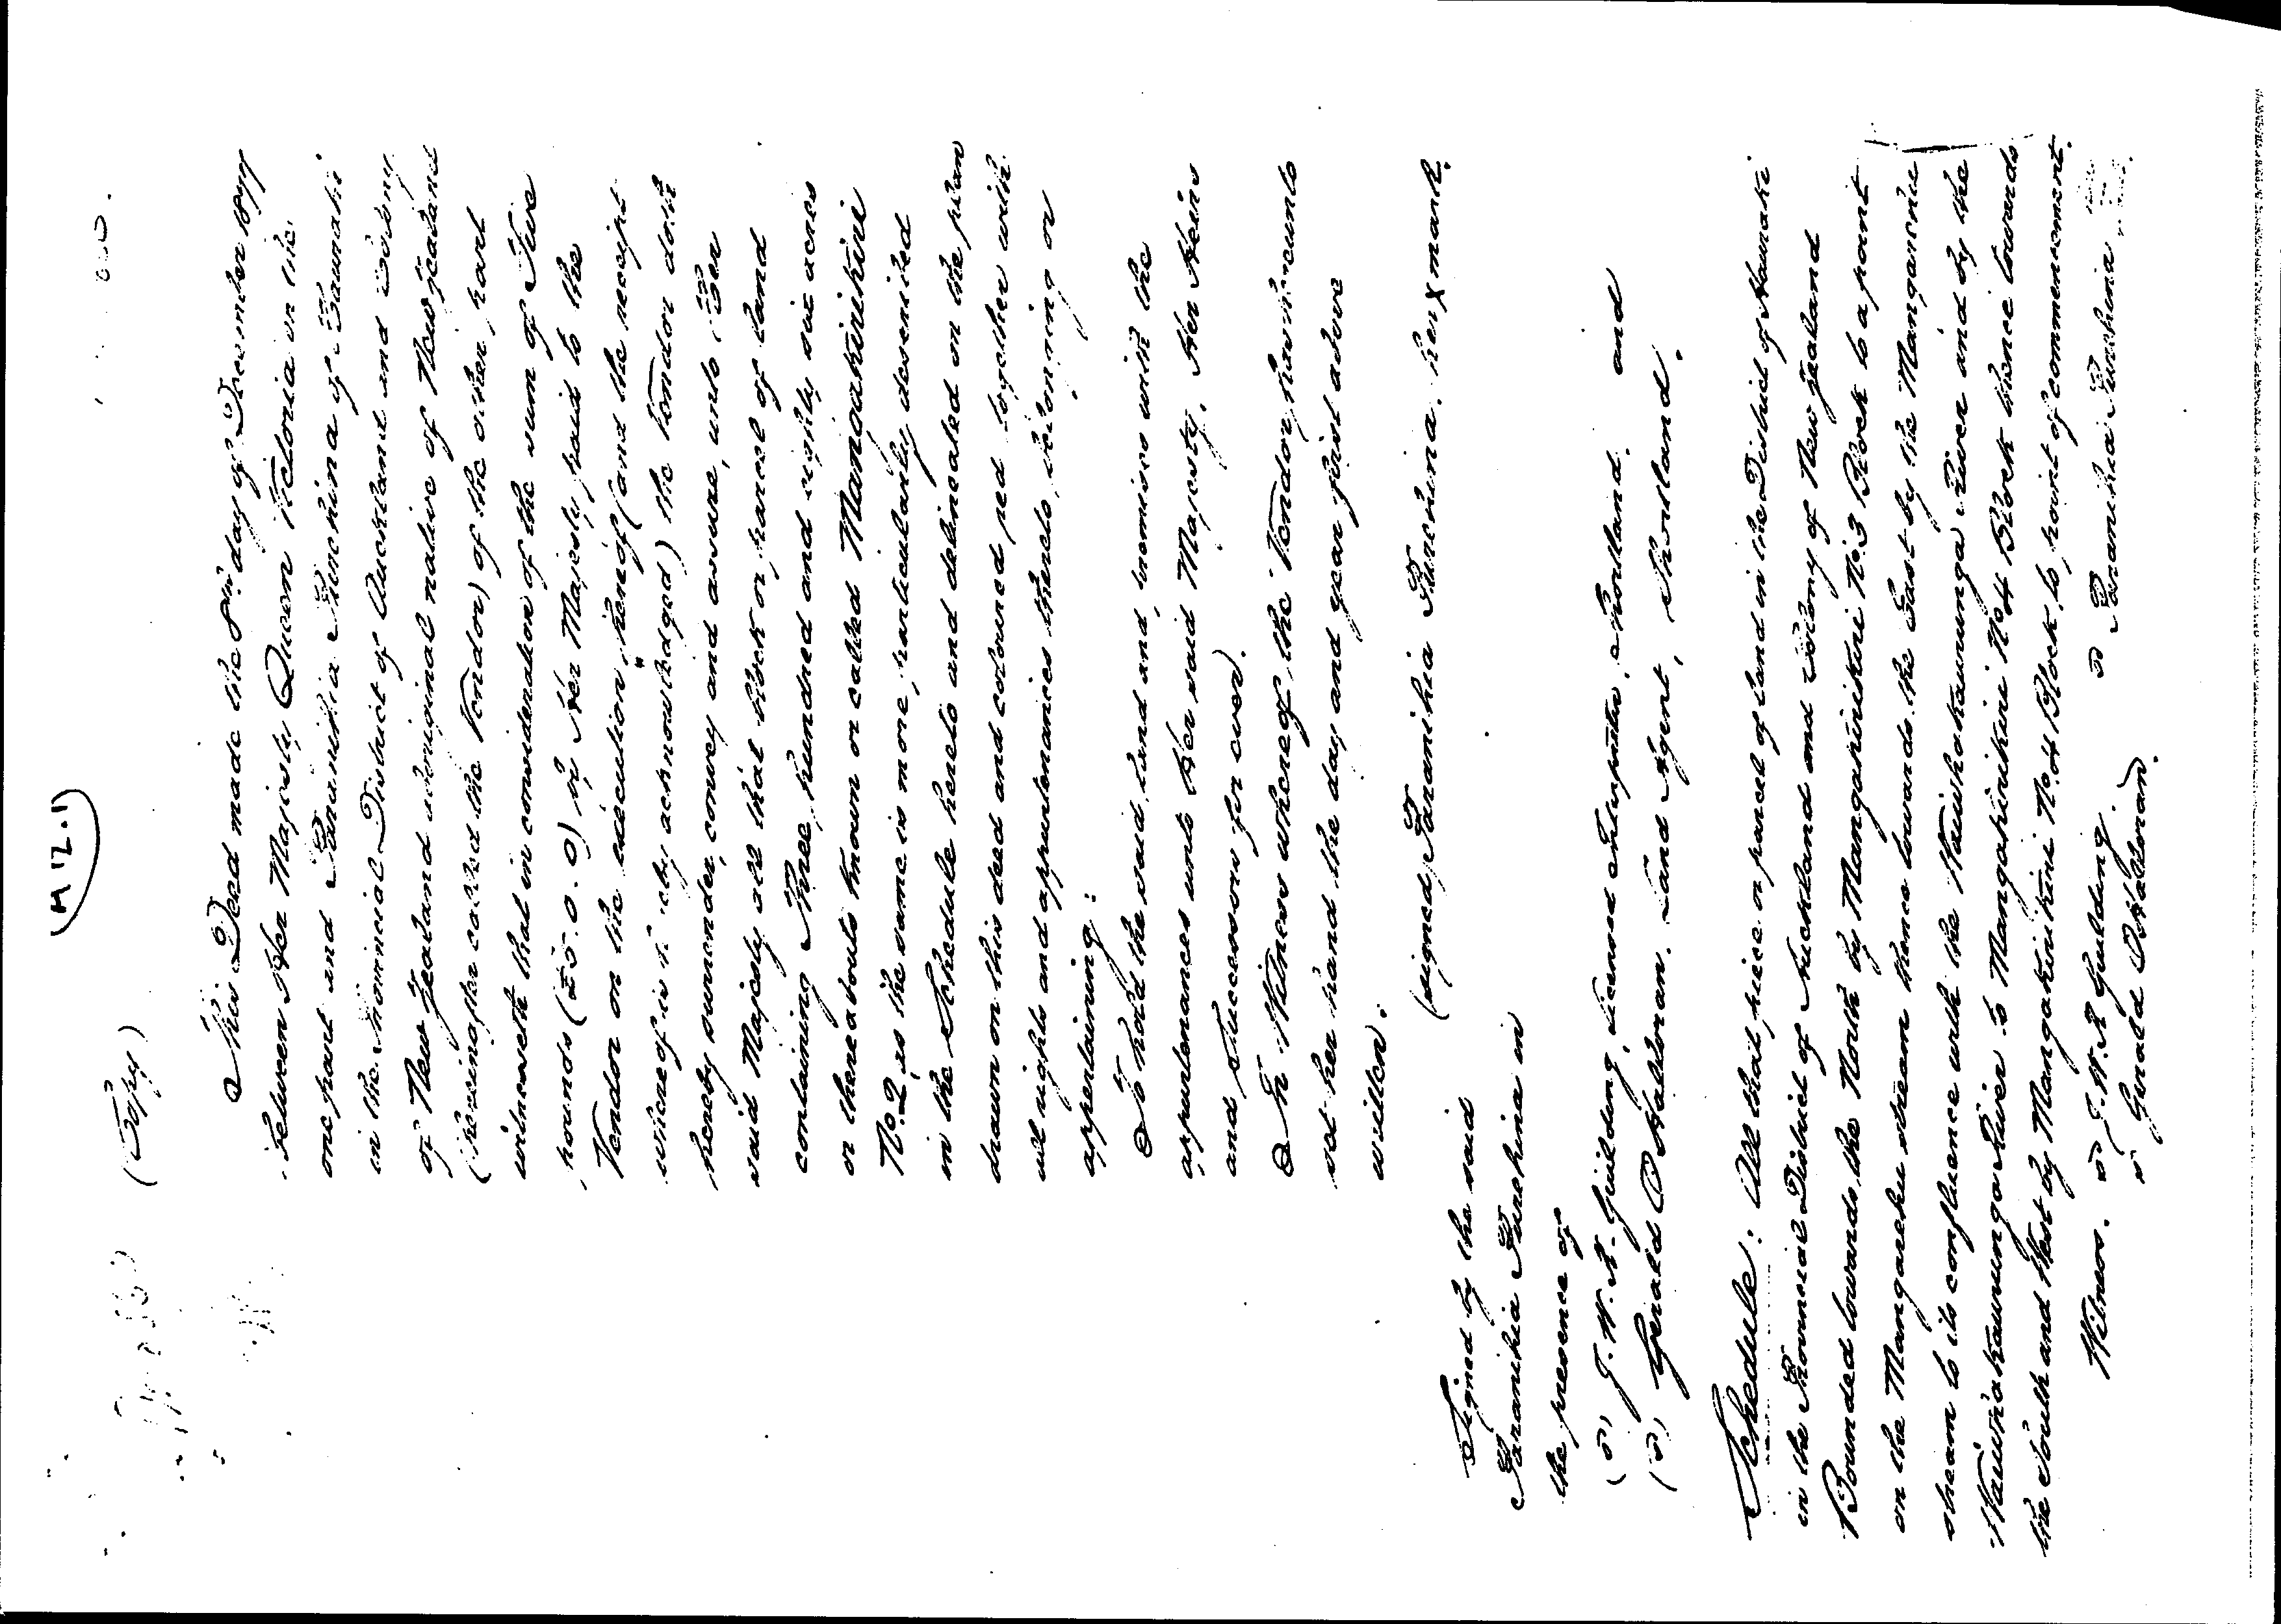 (H 12.1)
(Copy)
This Deed made the 8th day of December 1877
between Her Majesty Queen Victoria on the
one part and Taranihia Purehina of Hauraki
in the Provincial District of Auckland and Colony
of New Zealand aboriginal native of New Zealand
(hereinafter called the Vendor) of the other part
witnesseth that in consideration of the sum of Five
pounds (£5.0.0) by Her Majesty paid to the
Vendor on the execution hereof (and the receipt
whereof is hereby acknowledged) the Vendor doth
hereby surrender, convey and assure, unto Her
said Majesty all that block or parcel of land
containing Three hundred and eighty six acres
or thereabouts known or called Mangakirikiri
No. 2, as the same is more particularly described
in the Schedule hereto and delineated on the plan
drawn on this deed and coloured red together with
all rights and appurtenances thereto, belonging or
appertaining:
To hold the said, land and, premises with the
appurtenances unto Her said Majesty, Her Heirs
and Successors for ever.
In Witness whereof, the Vendor, hath hereunto
set her hand the day and year first above
written.
(signed) Taranihia Purehina. her x mark.
Signed by the said
Taranihia Purehina in
the presence of
(s) J. W. R. Guilding, Licensed Interpreter, Shortland. and
(s) Gerald O'Halloran. Land Agent, Shortland.
Schedule: All that piece or parcel of land in the District of Hauraki
in the Provincial District of Auckland and Colony of New Zealand
Bounded towards the North by Mangakirikiri No. 3 Block to a point
on the Mangarehu stream thence towards the East by the Mangarehu
stream to its confluence with the Kauwhakaurunga River and by the
Kauwhakaurunga River to Mangakirikiri No. 4 Block thence towards
the South and West by Mangakirikiri No. 4 Block, to point of commencement.
s Taranihia Purehina
Witness. s J. W. R. Guilding.
s Gerald O'Halloran.